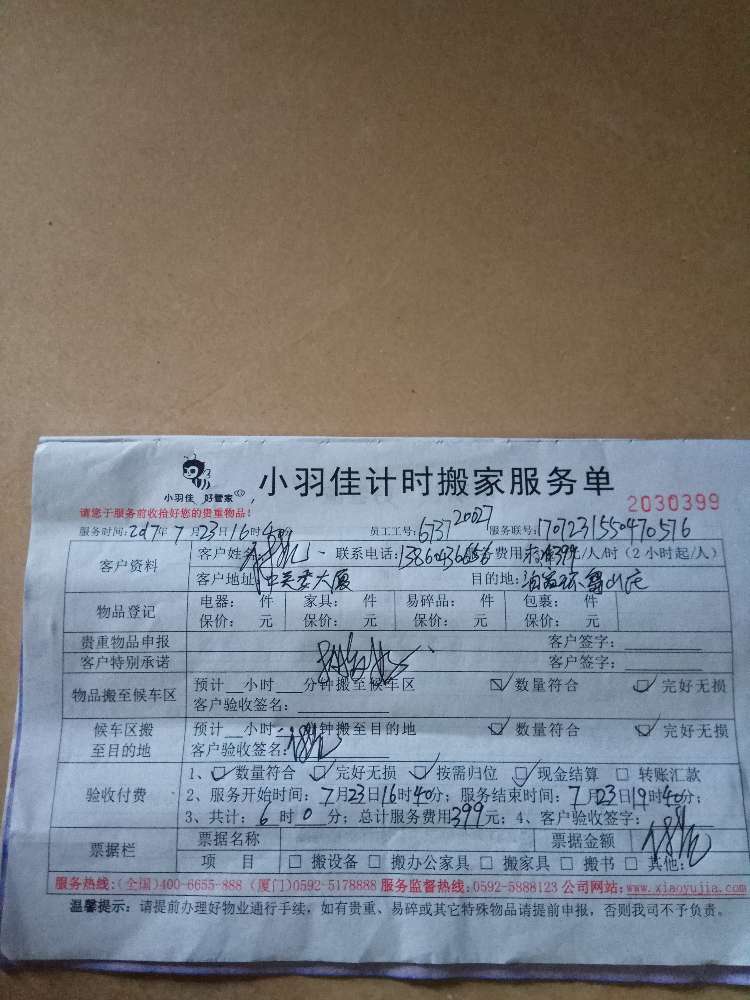 小羽佳 好管家
小羽佳计时搬家服务单
2030399
请您于服务前收拾好您的贵重物品!
服务时间:2017年7月23日16时40分 员工工号:6737 20027 服务联号:1707231550470576
客户资料 客户姓名: 联系电话:13860436656 费用 标准399元/人/时(2小时起/人)
客户地址: 大厦 目的地: 山庄
物品登记 电器: 件 家具: 件 易碎品: 件 包裹: 件
保价: 元 保价: 元 保价: 元 保价: 元
贵重物品申报 客户签字:
客户特别承诺 客户签字:
物品搬至候车区 预计__小时___分钟搬至候车区 数量符合 完好无损
客户验收签名:
候车区搬至目的地 预计__小时 分钟搬至目的地 数量符合 完好无损
客户验收签名:
验收付费 1、数量符合 完好无损 按需归位 现金结算 转账汇款
2、服务开始时间:7月23日16时40分; 服务结束时间:7月23日19时40分;
3、共计:6时0分; 总计服务费用399元; 4、客户验收签字:
票据栏 票据名称 票据金额
项目 搬设备 搬办公家具 搬家具 搬书 其他:
服务热线:(全国)400-6655-888 (厦门)0592-5178888 服务监督热线:0592-5888123 公司网站:www.xiaoyujia.com
温馨提示: 请提前办理好物业通行手续,如有贵重、易碎或其它特殊物品请提前申报,否则我司不予负责。